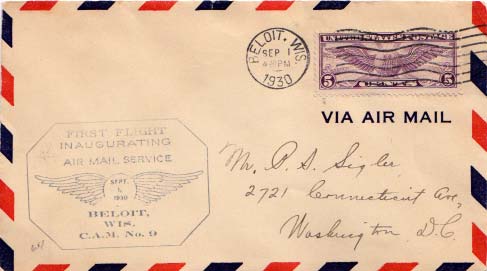 BELOIT, WIS.
SEP 1
4-30PM
1930
UNITED STATES POSTAGE
5 CENTS 5
VIA AIR MAIL
FIRST FLIGHT
INAUGURATING
AIR MAIL SERVICE
SEPT.
1,
1930
BELOIT,
WIS.
C.A.M. No. 9
Mr. P. S. Sigler,
2721 Connecticut Ave,
Washington D.C.